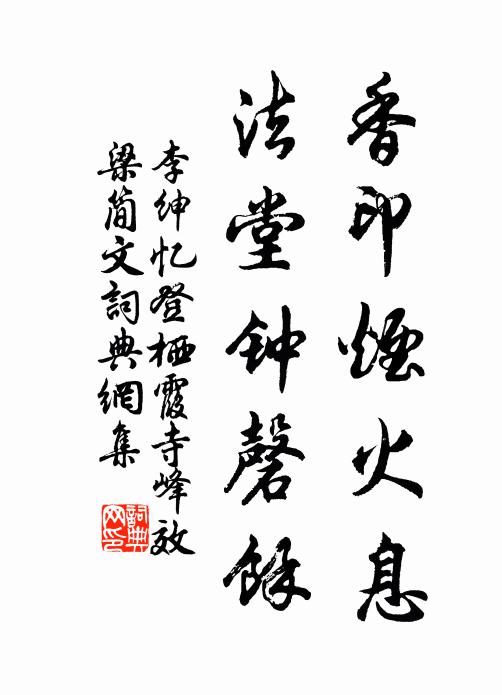 香印煙火息
法堂钟磬餘
李绅忆登栖霞寺峰效
梁简文詞典網集
詞典网印